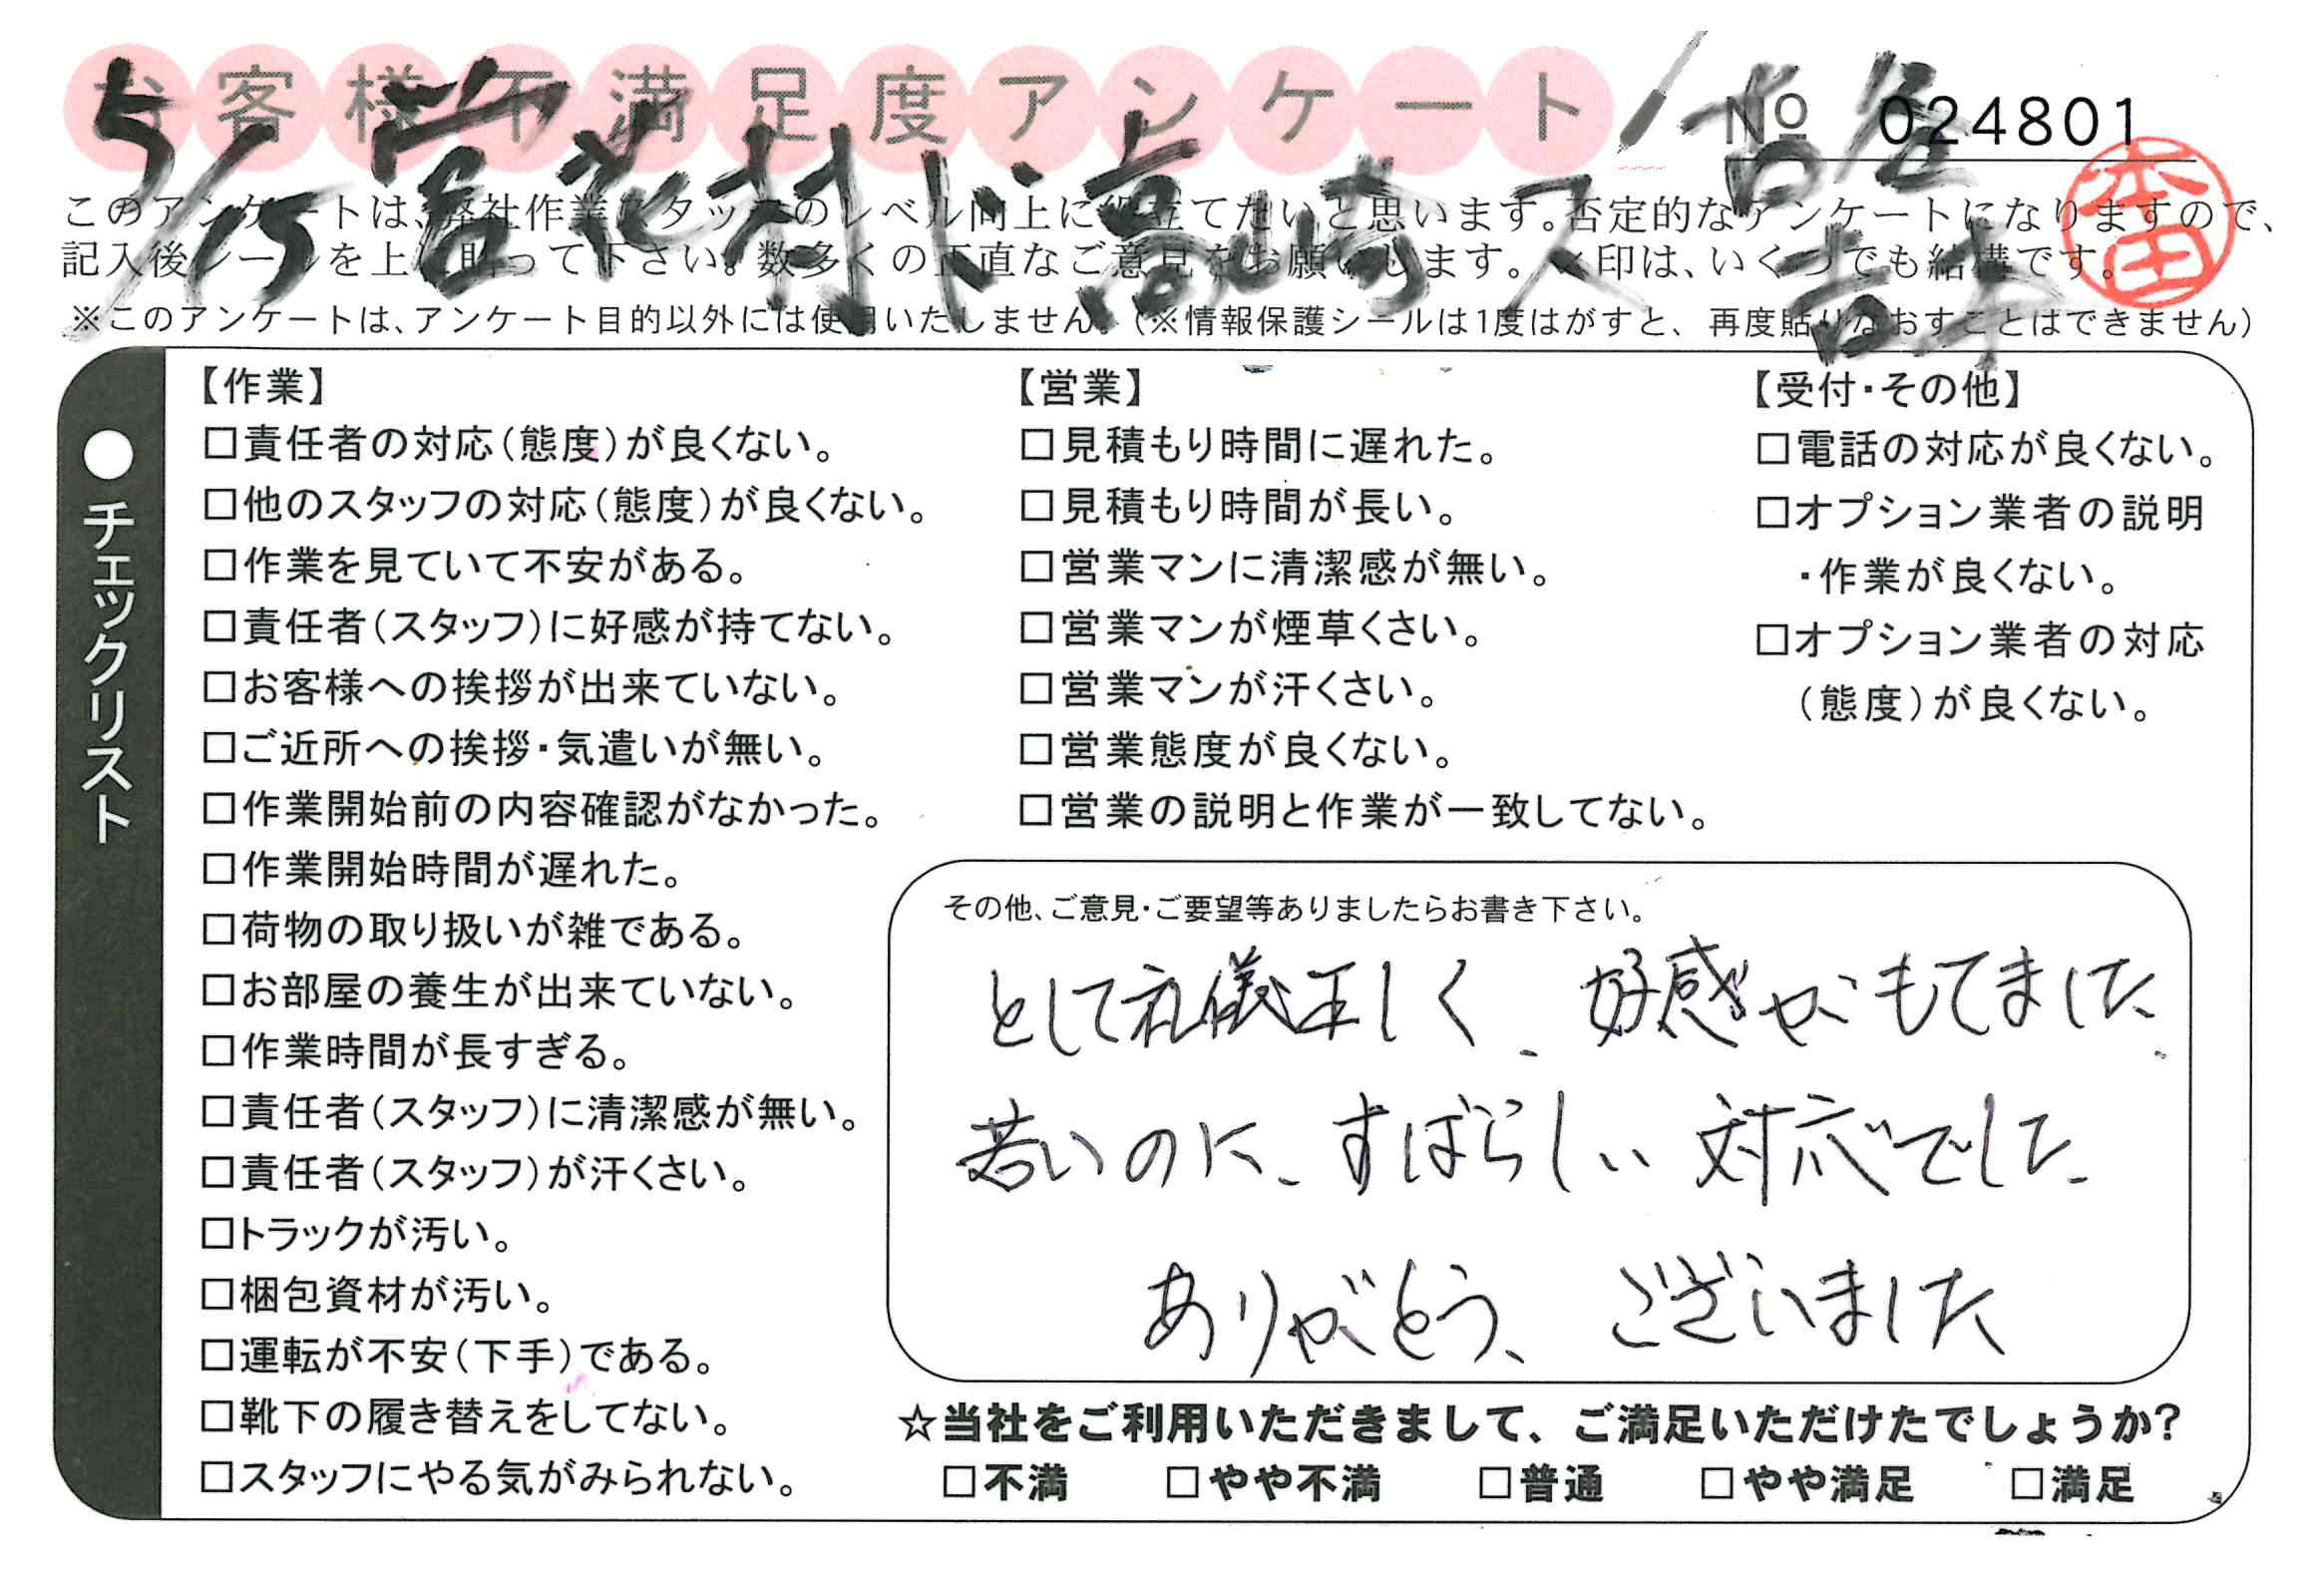 お客様不満足度アンケート
No 024801
5/15
本田
このアンケートは、弊社作業スタッフのレベル向上に役立てたいと思います。否定的なアンケートになりますので、
記入後シールを上に貼って下さい。数多くの正直なご意見をお願いします。✓印は、いくつでも結構です。
※このアンケートは、アンケート目的以外には使用いたしません。(※情報保護シールは1度はがすと、再度貼りなおすことはできません)
●チェックリスト
【作業】
□責任者の対応(態度)が良くない。
□他のスタッフの対応(態度)が良くない。
□作業を見ていて不安がある。
□責任者(スタッフ)に好感が持てない。
□お客様への挨拶が出来ていない。
□ご近所への挨拶・気遣いが無い。
□作業開始前の内容確認がなかった。
□作業開始時間が遅れた。
□荷物の取り扱いが雑である。
□お部屋の養生が出来ていない。
□作業時間が長すぎる。
□責任者(スタッフ)に清潔感が無い。
□責任者(スタッフ)が汗くさい。
□トラックが汚い。
□梱包資材が汚い。
□運転が不安(下手)である。
□靴下の履き替えをしてない。
□スタッフにやる気がみられない。
【営業】
□見積もり時間に遅れた。
□見積もり時間が長い。
□営業マンに清潔感が無い。
□営業マンが煙草くさい。
□営業マンが汗くさい。
□営業態度が良くない。
□営業の説明と作業が一致してない。
【受付・その他】
□電話の対応が良くない。
□オプション業者の説明
・作業が良くない。
□オプション業者の対応
(態度)が良くない。
その他、ご意見・ご要望等ありましたらお書き下さい。
として礼儀正しく、好感がもてました。
若いのに、すばらしい対応でした
ありがとう、ございました
☆当社をご利用いただきまして、ご満足いただけたでしょうか?
□不満 □やや不満 □普通 □やや満足 □満足